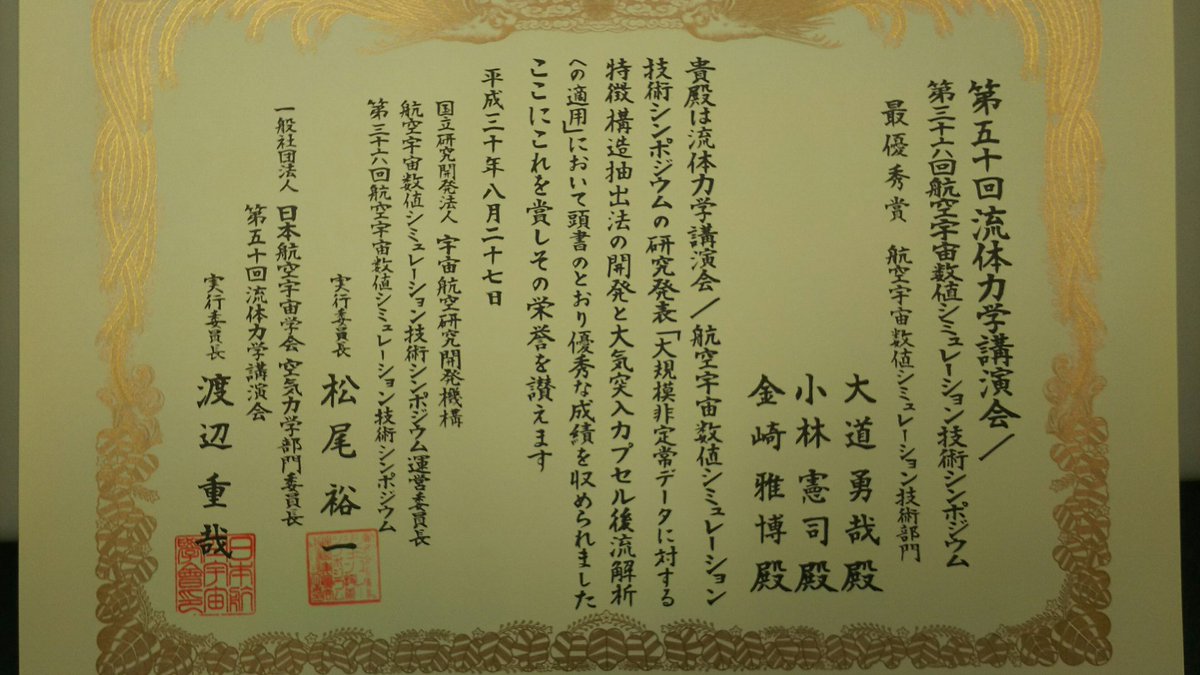 第五十回流体力学講演会／
第三十六回航空宇宙数値シミュレーション技術シンポジウム
最優秀賞 航空宇宙数値シミュレーション技術部門
大道勇哉殿
小林憲司殿
金崎雅博殿
貴殿は流体力学講演会／航空宇宙数値シミュレーション
技術シンポジウムの研究発表「大規模非定常データに対する
特徴構造抽出法の開発と大気突入カプセル後流解析
への適用」において頭書のとおり優秀な成績を収められました
ここにこれを賞しその栄誉を讃えます
平成三十年八月二十七日
国立研究開発法人 宇宙航空研究開発機構
航空宇宙数値シミュレーション技術シンポジウム運営委員長
第三十六回航空宇宙数値シミュレーション技術シンポジウム
実行委員長 松尾裕一
一般社団法人 日本航空宇宙学会 空気力学部門委員長
第五十回流体力学講演会
実行委員長 渡辺重哉